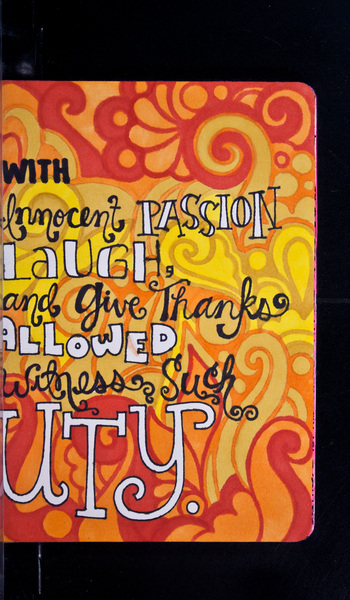 WITH
Innocent PASSION
LaUGH,
and Give Thanks
ALLOWED
Witness Such
UTY.